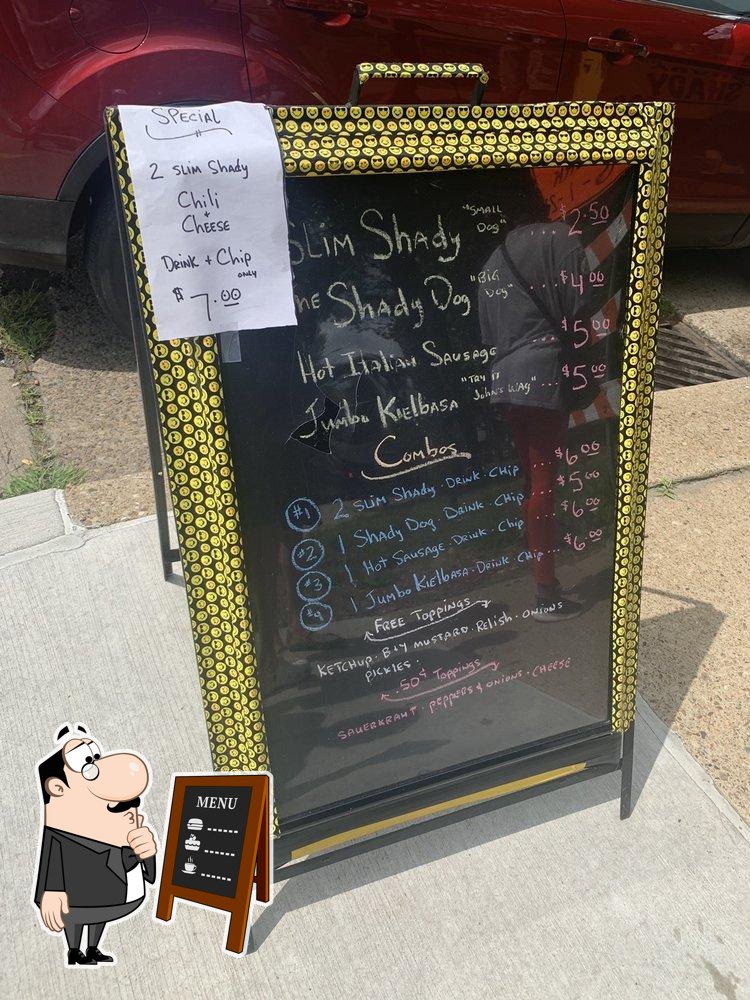 SPECIAL
2 SLIM SHADY
CHILI
+
CHEESE
DRINK + CHIP
ONLY
$7.00
SLIM SHADY "SMALL DOG" ... $2.50
THE SHADY DOG "BIG DOG" ... $4.00
HOT ITALIAN SAUSAGE ... $5.00
JUMBO KIELBASA "TRY IT JOHN'S WAY" ... $5.00
COMBOS
#1 2 SLIM SHADY · DRINK · CHIP ... $6.00
#2 1 SHADY DOG · DRINK · CHIP ... $5.00
#3 1 HOT SAUSAGE · DRINK · CHIP ... $6.00
#4 1 JUMBO KIELBASA · DRINK · CHIP ... $6.00
FREE TOPPINGS
KETCHUP · B+Y MUSTARD · RELISH · ONIONS
PICKLES ·
.50¢ TOPPINGS
SAUERKRAUT · PEPPERS & ONIONS · CHEESE
MENU